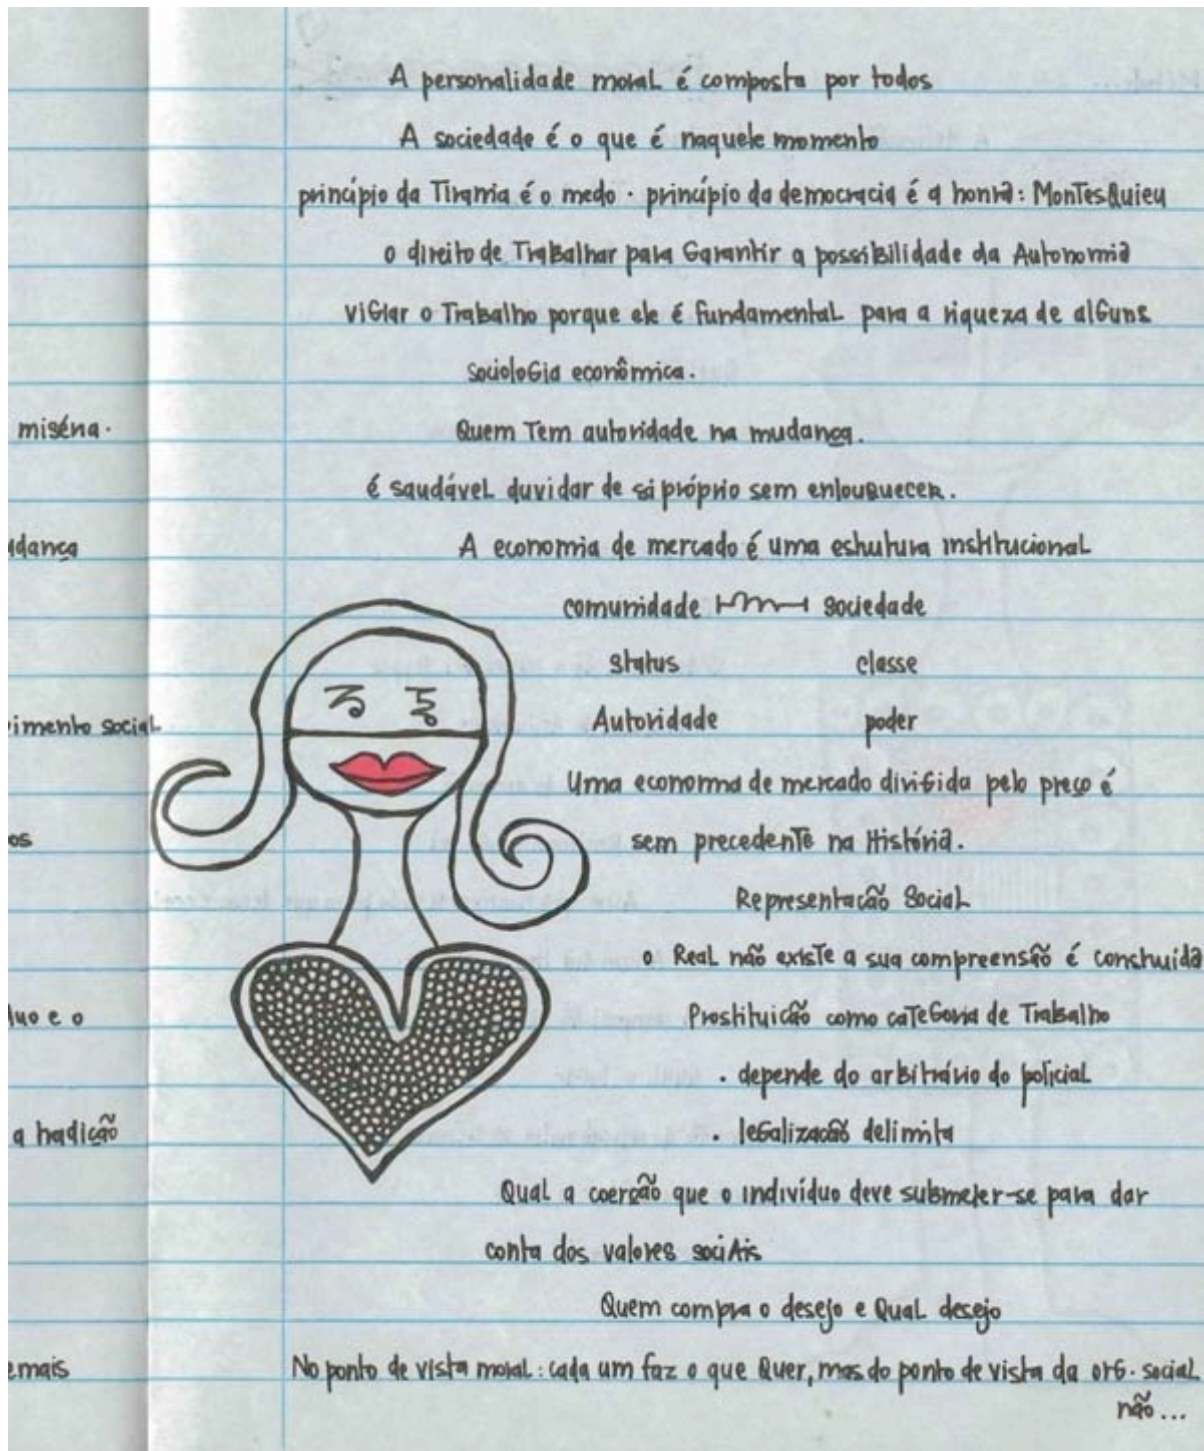 A personalidade moral é composta por todos
A sociedade é o que é naquele momento
princípio da Tirania é o medo · princípio da democracia é a honra: MonTesQuieu
o direito de Trabalhar para Garantir a possibilidade da Autonomia
viGiar o Trabalho porque ele é fundamental para a riqueza de alGuns
socioloGia econômica.
miséria.
Quem Tem autoridade na mudança.
é saudável duvidar de si próprio sem enlouquecer.
udança
A economia de mercado é uma estrutura institucional
comunidade sociedade
status classe
imento social
Autoridade poder
Uma economia de mercado diviGida pelo preço é
os
sem precedente na História.
Representação Social
o Real não existe a sua compreensão é construída
duo e o
Prostituição como caTeGoria de Trabalho
· depende do arbitrário do policial
a tradição
· leGalização delimita
Qual a coerção que o indivíduo deve submeter-se para dar
conta dos valores sociAis
Quem compra o desejo e Qual desejo
emais
No ponto de vista moral: cada um faz o que Quer, mas do ponto de vista da orG. social
não...